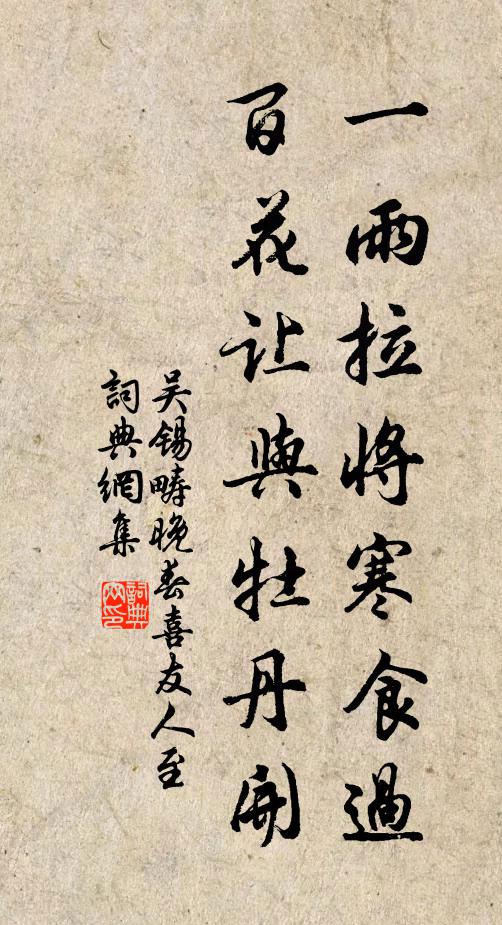 一雨拉將寒食過
百花让與牡丹開
吴锡畴晚春喜友人至
詞典網集
詞典網印